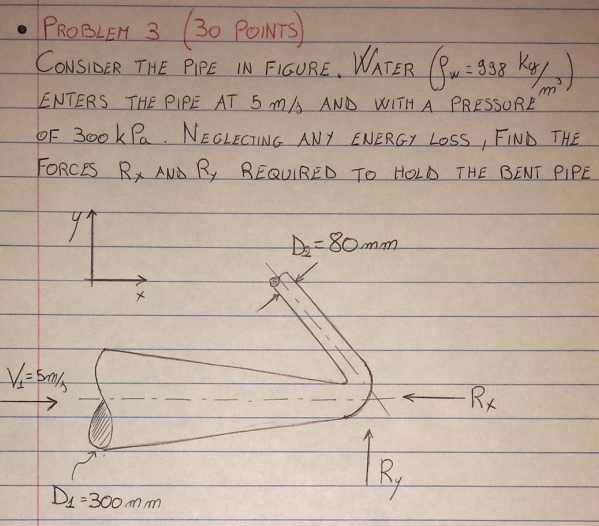 • PROBLEM 3 (30 POINTS)
CONSIDER THE PIPE IN FIGURE. WATER (ρw = 998 kg/m³)
ENTERS THE PIPE AT 5 m/s AND WITH A PRESSURE
OF 300 kPa. NEGLECTING ANY ENERGY LOSS, FIND THE
FORCES Rx AND Ry REQUIRED TO HOLD THE BENT PIPE
y
D2 = 80 mm
x
V1 = 5 m/s
Rx
Ry
D1 = 300 mm